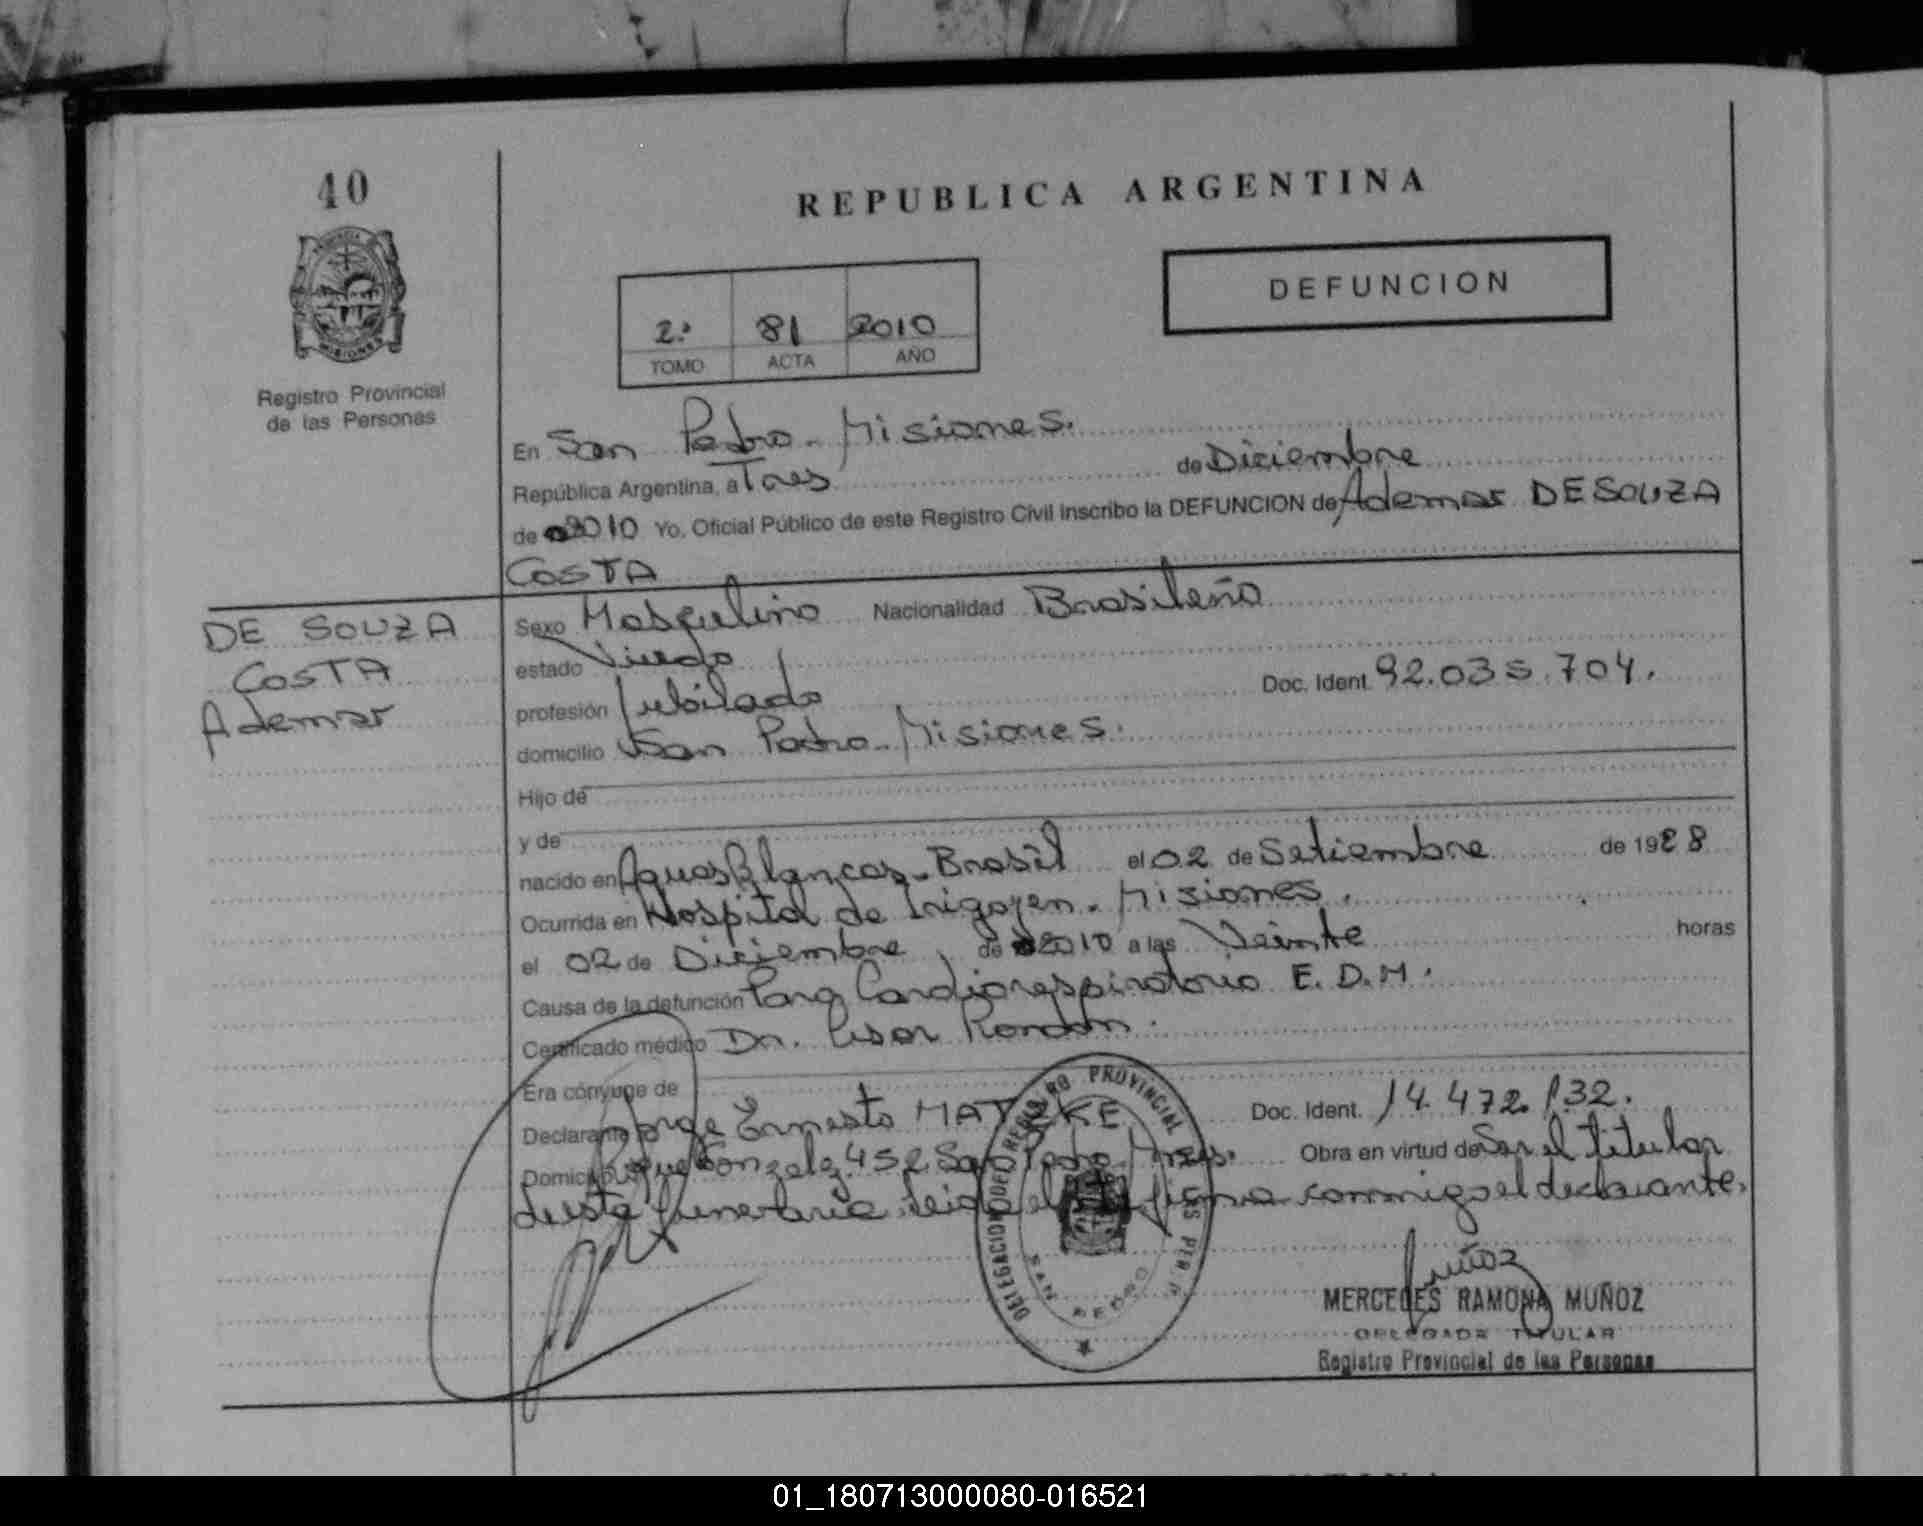 40
REPUBLICA ARGENTINA
DEFUNCION
2º 81 2010
TOMO ACTA AÑO
Registro Provincial
de las Personas
En San Pedro - Misiones.
República Argentina, a Tres de Diciembre
de 2010 Yo, Oficial Público de este Registro Civil inscribo la DEFUNCION de Ademar DE SOUZA
COSTA
DE SOUZA
COSTA
Ademar
Sexo Masculino Nacionalidad Brasileña
estado Viudo
profesión Jubilado Doc. Ident. 92.035.704.
domicilio San Pedro - Misiones.
Hijo de
y de
nacido en Aguas Blancas - Brasil el 02 de Setiembre de 1928
Ocurrida en Hospital de Irigoyen - Misiones.
el 02 de Diciembre de 2010 a las Veinte horas
Causa de la defunción Paro Cardiorespiratorio E.D.M.
Certificado médico Dr. Cesar Rondon.
Era cónyuge de
Declarante Jorge Ernesto MATZKE Doc. Ident. 14.472.132.
Domicilio Roque Gonzalez 452 San Pedro Mnes. Obra en virtud de Ser el titular
de esta funeraria leida el acta firma conmigo el declarante.
DELEGACION DEL REGISTRO PROVINCIAL DE LAS PER.
SAN PEDRO
Muñoz
MERCEDES RAMONA MUÑOZ
DELEGADA TITULAR
Registro Provincial de las Personas
01_180713000080-016521